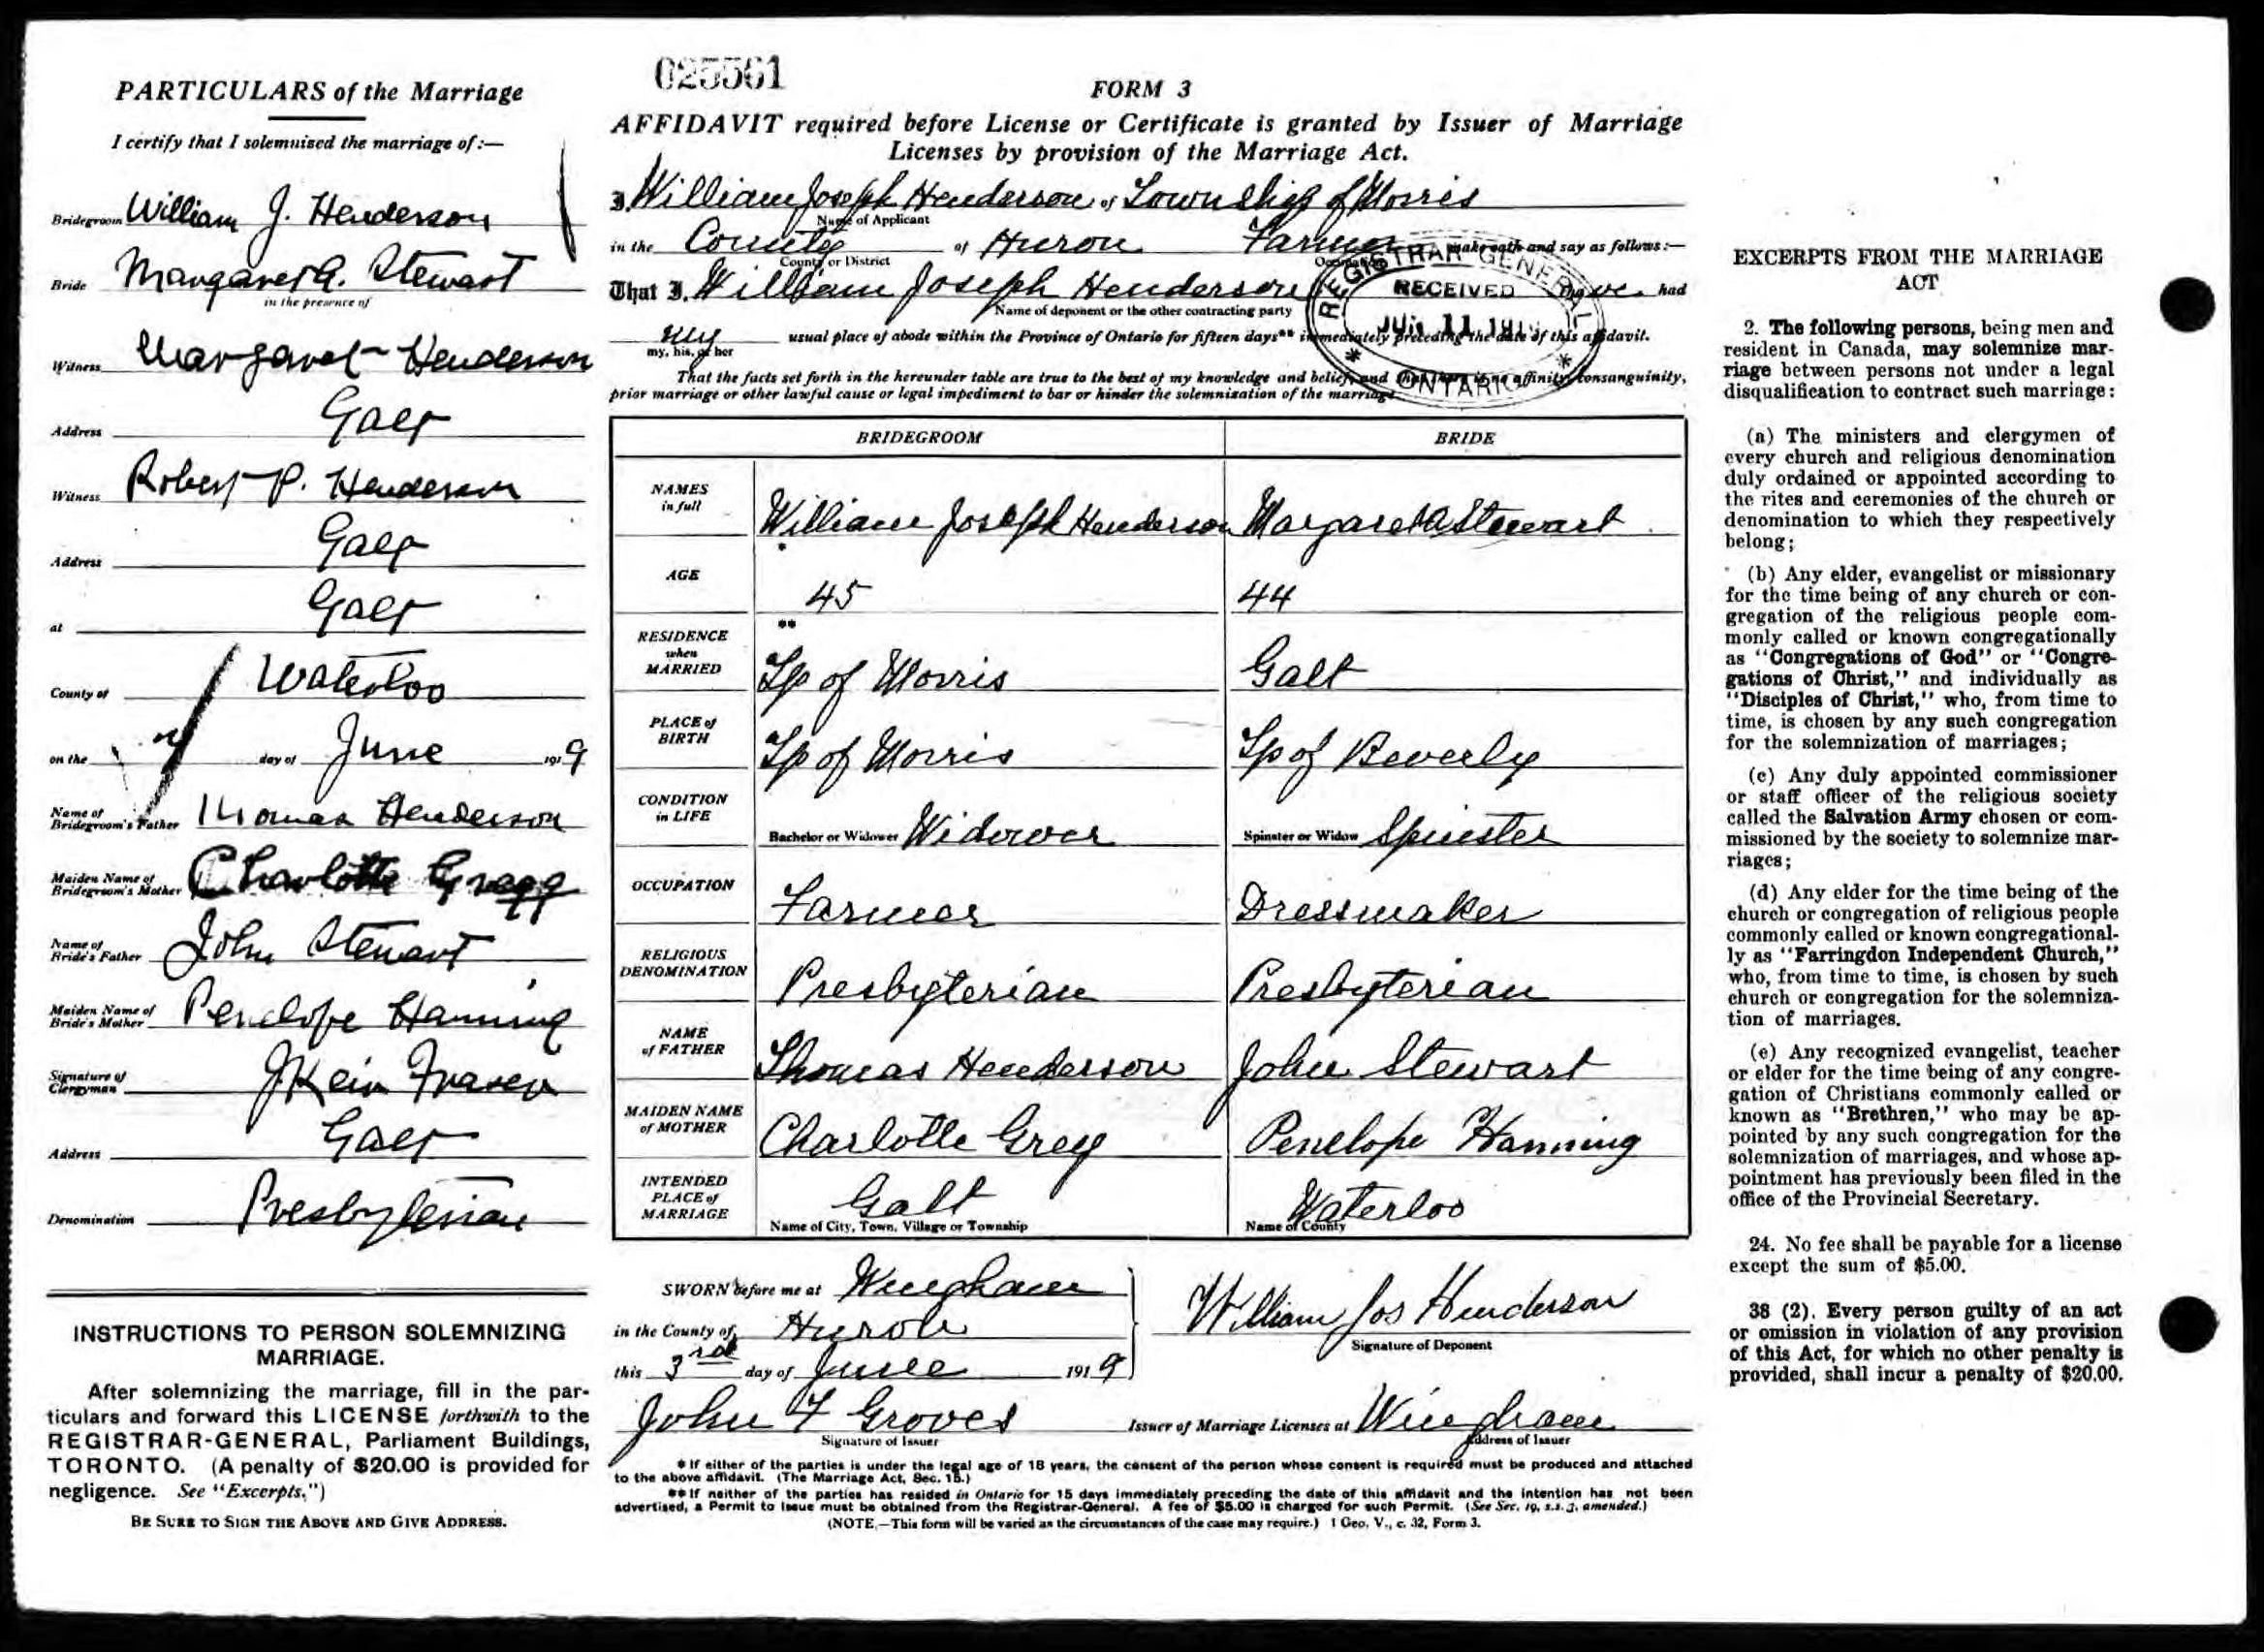 PARTICULARS of the Marriage
I certify that I solemnized the marriage of:—
Bridegroom William J. Henderson
Bride Margaret A. Stewart
in the presence of
Witness Margaret Henderson
Address Galt
Witness Robert P. Henderson
Address Galt
at Galt
County of Waterloo
on the day of June 1919
Name of Bridegroom's Father Thomas Henderson
Maiden Name of Bridegroom's Mother Charlotte Gregg
Name of Bride's Father John Stewart
Maiden Name of Bride's Mother Penelope Hanning
Signature of Clergyman Fraser
Address Galt
Denomination Presbyterian
INSTRUCTIONS TO PERSON SOLEMNIZING
MARRIAGE.
After solemnizing the marriage, fill in the par-
ticulars and forward this LICENSE forthwith to the
REGISTRAR-GENERAL, Parliament Buildings,
TORONTO. (A penalty of $20.00 is provided for
negligence. See "Excerpts.")
BE SURE TO SIGN THE ABOVE AND GIVE ADDRESS.
025561
FORM 3
AFFIDAVIT required before License or Certificate is granted by Issuer of Marriage
Licenses by provision of the Marriage Act.
I, William Joseph Henderson of Township of Morris
Name of Applicant
in the County of Huron Farmer make oath and say as follows:—
County or District Occupation
That I, William Joseph Henderson have had
Name of deponent or the other contracting party
my usual place of abode within the Province of Ontario for fifteen days** immediately preceding the date of this affidavit.
my, his, or her
REGISTRAR GENERAL
RECEIVED
JUN 11 1919
* ONTARIO *
That the facts set forth in the hereunder table are true to the best of my knowledge and belief, and that there is no affinity, consanguinity,
prior marriage or other lawful cause or legal impediment to bar or hinder the solemnization of the marriage.
BRIDEGROOM BRIDE
NAMES in full William Joseph Henderson Margaret A Stewart
AGE * 45 44
RESIDENCE when MARRIED ** Tp of Morris Galt
PLACE of BIRTH Tp of Morris Tp of Beverly
CONDITION in LIFE Bachelor or Widower Widower Spinster or Widow Spinster
OCCUPATION Farmer Dressmaker
RELIGIOUS DENOMINATION Presbyterian Presbyterian
NAME of FATHER Thomas Henderson John Stewart
MAIDEN NAME of MOTHER Charlotte Greg Penelope Hanning
INTENDED PLACE of MARRIAGE Galt Waterloo
Name of City, Town, Village or Township Name of County
SWORN before me at Wingham
in the County of Huron
this 3rd day of June 1919
William Jos Henderson
Signature of Deponent
John F Groves Issuer of Marriage Licenses at Wingham
Signature of Issuer Address of Issuer
* If either of the parties is under the legal age of 18 years, the consent of the person whose consent is required must be produced and attached
to the above affidavit. (The Marriage Act, Sec. 15.)
** If neither of the parties has resided in Ontario for 15 days immediately preceding the date of this affidavit and the intention has not been
advertised, a Permit to issue must be obtained from the Registrar-General. A fee of $5.00 is charged for such Permit. (See Sec. 19, s.s. 3, amended.)
(NOTE.—This form will be varied as the circumstances of the case may require.) 1 Geo. V., c. 32, Form 3.
EXCERPTS FROM THE MARRIAGE
ACT
2. The following persons, being men and
resident in Canada, may solemnize mar-
riage between persons not under a legal
disqualification to contract such marriage:
(a) The ministers and clergymen of
every church and religious denomination
duly ordained or appointed according to
the rites and ceremonies of the church or
denomination to which they respectively
belong;
(b) Any elder, evangelist or missionary
for the time being of any church or con-
gregation of the religious people com-
monly called or known congregationally
as "Congregations of God" or "Congre-
gations of Christ," and individually as
"Disciples of Christ," who, from time to
time, is chosen by any such congregation
for the solemnization of marriages;
(c) Any duly appointed commissioner
or staff officer of the religious society
called the Salvation Army chosen or com-
missioned by the society to solemnize mar-
riages;
(d) Any elder for the time being of the
church or congregation of religious people
commonly called or known congregational-
ly as "Farringdon Independent Church,"
who, from time to time, is chosen by such
church or congregation for the solemniza-
tion of marriages.
(e) Any recognized evangelist, teacher
or elder for the time being of any congre-
gation of Christians commonly called or
known as "Brethren," who may be ap-
pointed by any such congregation for the
solemnization of marriages, and whose ap-
pointment has previously been filed in the
office of the Provincial Secretary.
24. No fee shall be payable for a license
except the sum of $5.00.
38 (2). Every person guilty of an act
or omission in violation of any provision
of this Act, for which no other penalty is
provided, shall incur a penalty of $20.00.